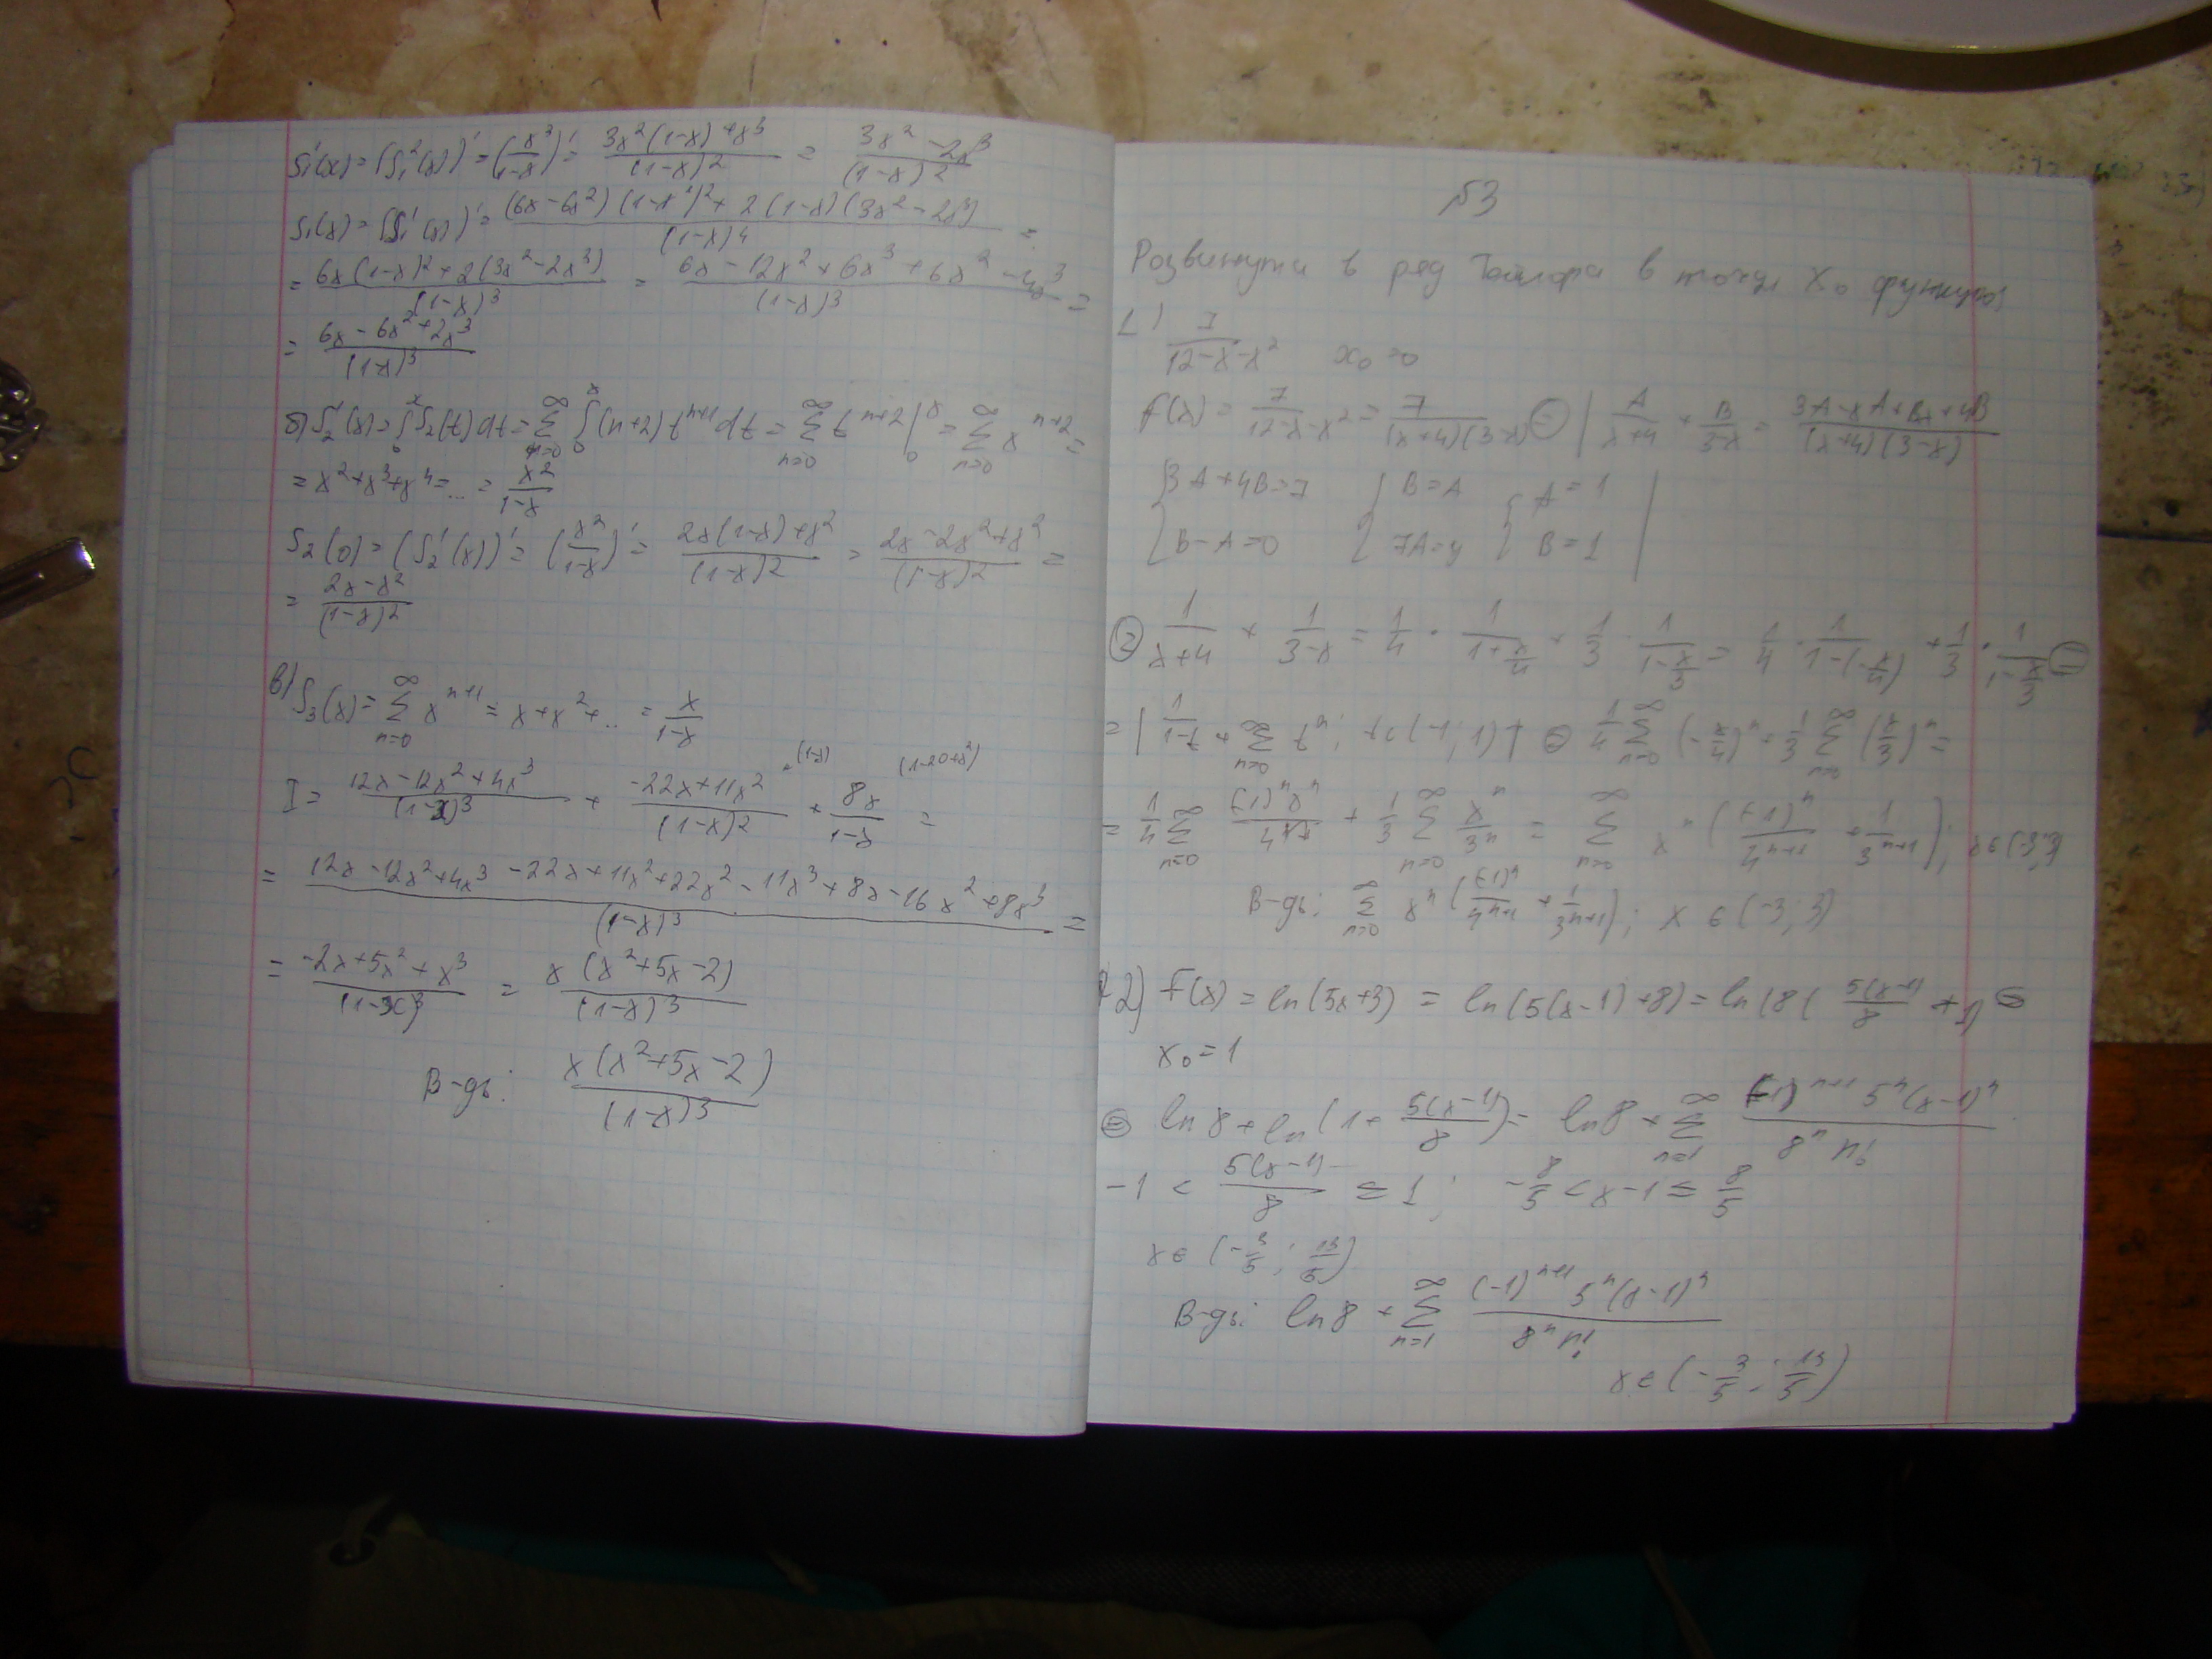 S₁'(x) = (S₁²(x))' = (x³/(1-x))' = (3x²(1-x)+x³)/(1-x)² = (3x²-2x³)/(1-x)²
S₁(x) = (S₁'(x))' = ((6x-6x²)(1-x)²+2(1-x)(3x²-2x³))/(1-x)⁴ =
= (6x(1-x)²+2(3x²-2x³))/(1-x)³ = (6x-12x²+6x³+6x²-4x³)/(1-x)³ =
= (6x-6x²+2x³)/(1-x)³
б) S₂'(x) = ∫₀ˣ S₂(t)dt = ∑_{n=0}^∞ ∫₀ˣ (n+2)tⁿ⁺¹dt = ∑_{n=0}^∞ tⁿ⁺²|₀ˣ = ∑_{n=0}^∞ xⁿ⁺² =
= x²+x³+x⁴=... = x²/(1-x)
S₂(0) = (S₂'(x))' = (x²/(1-x))' = (2x(1-x)+x²)/(1-x)² = (2x-2x²+x²)/(1-x)² =
= (2x-x²)/(1-x)²
в) S₃(x) = ∑_{n=0}^∞ xⁿ⁺¹ = x+x²+.. = x/(1-x)
I = (12x-12x²+4x³)/(1-x)³ + (-22x+11x²)/(1-x)² ·(1-x) + 8x/(1-x) =
= (12x-12x²+4x³-22x+11x²+22x²-11x³+8x-16x²+8x³)/(1-x)³ =
= (-2x+5x²+x³)/(1-x)³ = x(x²+5x-2)/(1-x)³
В-дь: x(x²+5x-2)/(1-x)³
№3
Розвинути в ряд Тейлора в точці x₀ функцію
1) 7/(12-x-x²) x₀=0
f(x) = 7/(12-x-x²) = 7/((x+4)(3-x)) ⊜ | A/(x+4) + B/(3-x) = (3A-xA+Bx+4B)/((x+4)(3-x))
{3A+4B=7 {B=A {A=1 |
{B-A=0 {7A=7 {B=1 |
⊜ 1/(x+4) + 1/(3-x) = 1/4 · 1/(1+x/4) + 1/3 · 1/(1-x/3) = 1/4 · 1/(1-(-x/4)) + 1/3 · 1/(1-x/3) ⊜
= | 1/(1-t) = ∑_{n=0}^∞ tⁿ; t∈(-1;1) | ⊜ 1/4 ∑_{n=0}^∞ (-x/4)ⁿ + 1/3 ∑_{n=0}^∞ (x/3)ⁿ =
= 1/4 ∑_{n=0}^∞ (-1)ⁿxⁿ/4ⁿ + 1/3 ∑_{n=0}^∞ xⁿ/3ⁿ = ∑_{n=0}^∞ xⁿ((-1)ⁿ/4ⁿ⁺¹ + 1/3ⁿ⁺¹); x∈(-3;3)
В-дь: ∑_{n=0}^∞ xⁿ((-1)ⁿ/4ⁿ⁺¹ + 1/3ⁿ⁺¹); x∈(-3;3)
2) f(x) = ln(5x+3) = ln(5(x-1)+8) = ln(8(5(x-1)/8 + 1) ⊜
x₀=1
⊜ ln8 + ln(1+5(x-1)/8) = ln8 + ∑_{n=1}^∞ (-1)ⁿ⁺¹5ⁿ(x-1)ⁿ/(8ⁿ n!)
-1 < 5(x-1)/8 ≤ 1; -8/5 < x-1 ≤ 8/5
x∈(-3/5; 13/5)
В-дь: ln8 + ∑_{n=1}^∞ (-1)ⁿ⁺¹5ⁿ(x-1)ⁿ/(8ⁿ n!)
x∈(-3/5; 13/5)